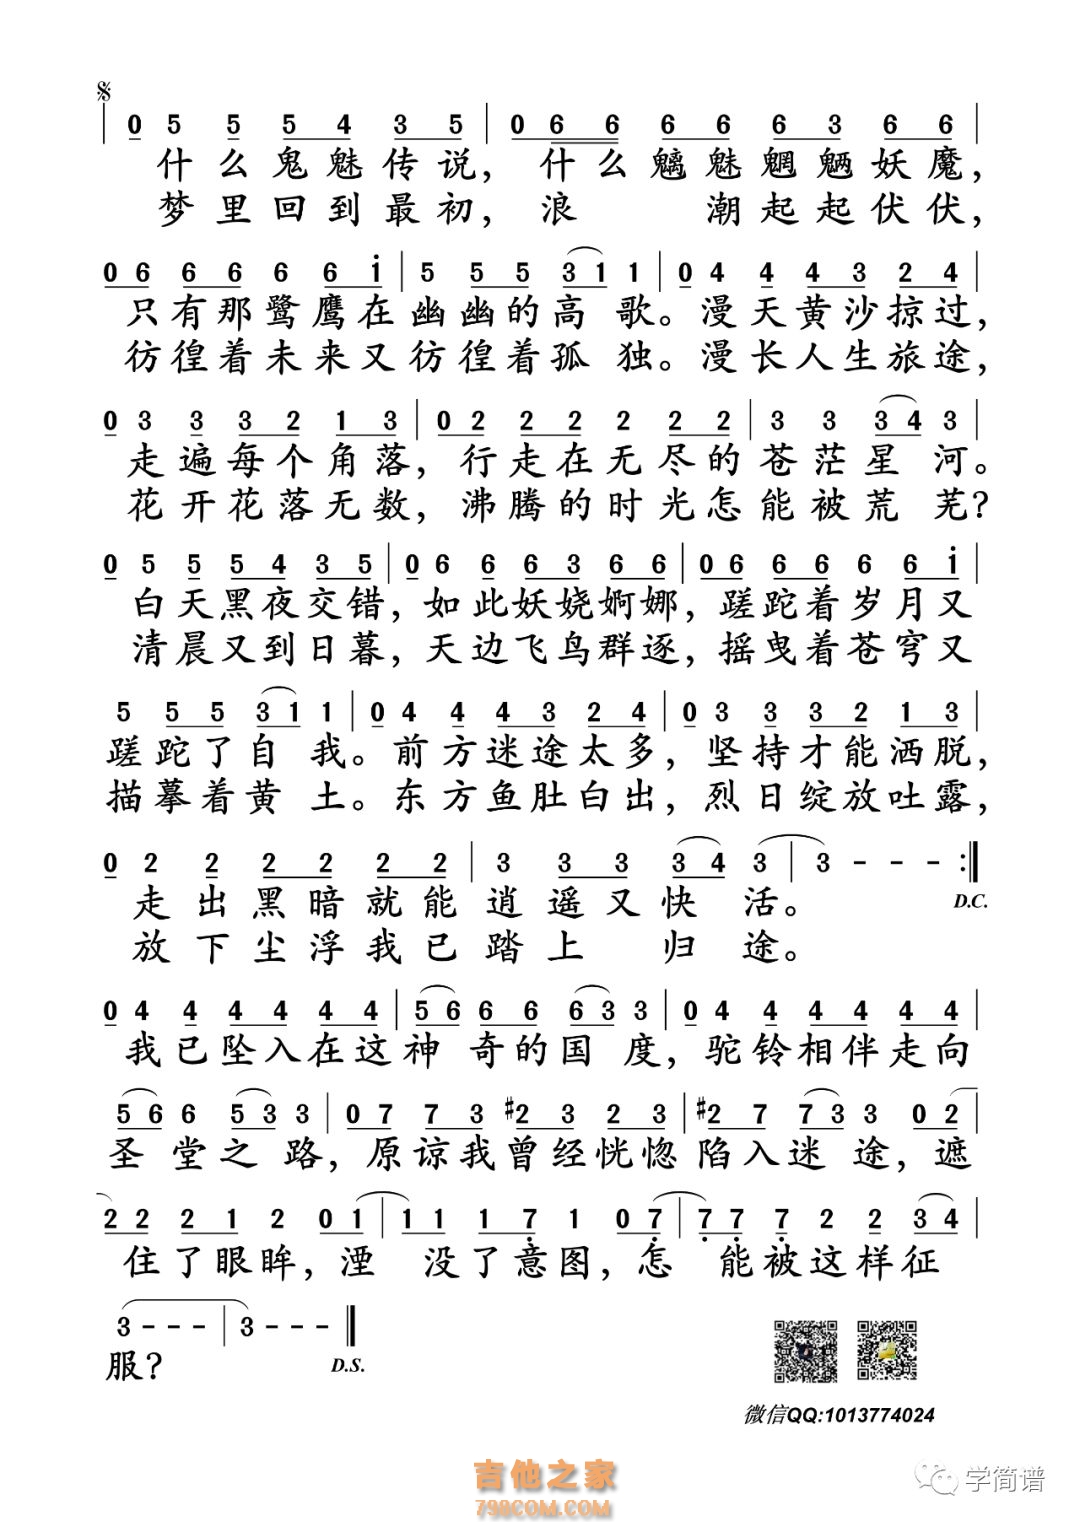 0 5 5 5 4 3 5 | 0 6 6 6 6 6 3 6 6 |
什么鬼魅传说，什么魑魅魍魉妖魔，
梦里回到最初，浪 潮起起伏伏，
0 6 6 6 6 6 i | 5 5 5 3 1 1 | 0 4 4 4 3 2 4 |
只有那鹭鹰在幽幽的高 歌。漫天黄沙掠过，
彷徨着未来又彷徨着孤 独。漫长人生旅途，
0 3 3 3 2 1 3 | 0 2 2 2 2 2 2 | 3 3 3 4 3 |
走遍每个角落，行走在无尽的苍茫星 河。
花开花落无数，沸腾的时光怎能被荒 芜？
0 5 5 5 4 3 5 | 0 6 6 6 3 6 6 | 0 6 6 6 6 6 i |
白天黑夜交错，如此妖娆婀娜，蹉跎着岁月又
清晨又到日暮，天边飞鸟群逐，摇曳着苍穹又
5 5 5 3 1 1 | 0 4 4 4 3 2 4 | 0 3 3 3 2 1 3 |
蹉跎了自 我。前方迷途太多，坚持才能洒脱，
描摹着黄 土。东方鱼肚白出，烈日绽放吐露，
0 2 2 2 2 2 2 | 3 3 3 3 4 3 | 3 - - - :||
D.C.
走出黑暗就能逍遥又快 活。
放下尘浮我已踏上 归 途。
0 4 4 4 4 4 4 | 5 6 6 6 6 3 3 | 0 4 4 4 4 4 4 |
我已坠入在这神 奇的国 度，驼铃相伴走向
5 6 6 5 3 3 | 0 7 7 3 #2 3 2 3 | #2 7 7 3 3 0 2
圣 堂之 路，原谅我曾经恍惚陷入迷 途，遮
2 2 2 1 2 0 1 | 1 1 1 7 1 0 7 | 7 7 7 2 2 3 4 |
住了眼眸，湮 没了意图，怎 能被这样征
3 - - - | 3 - - - ||
服？
D.S.
微信QQ:1013774024
吉他之家
798COM.COM
学简谱